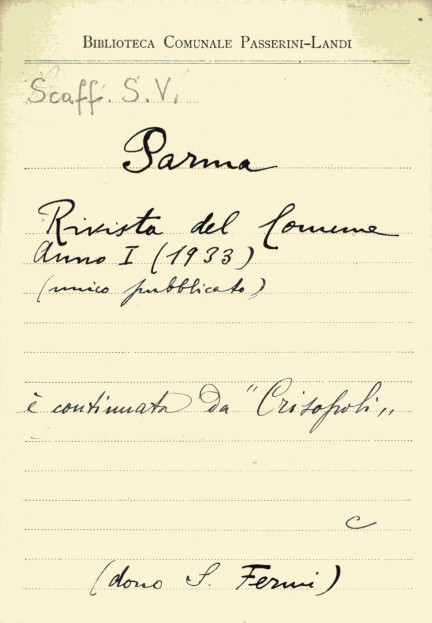 BIBLIOTECA COMUNALE PASSERINI-LANDI
Scaff. S.V.
Parma
Rivista del Comune
Anno I (1933)
(unico pubblicato)
è continuata da "Crisopoli„
C
(dono S. Fermi)